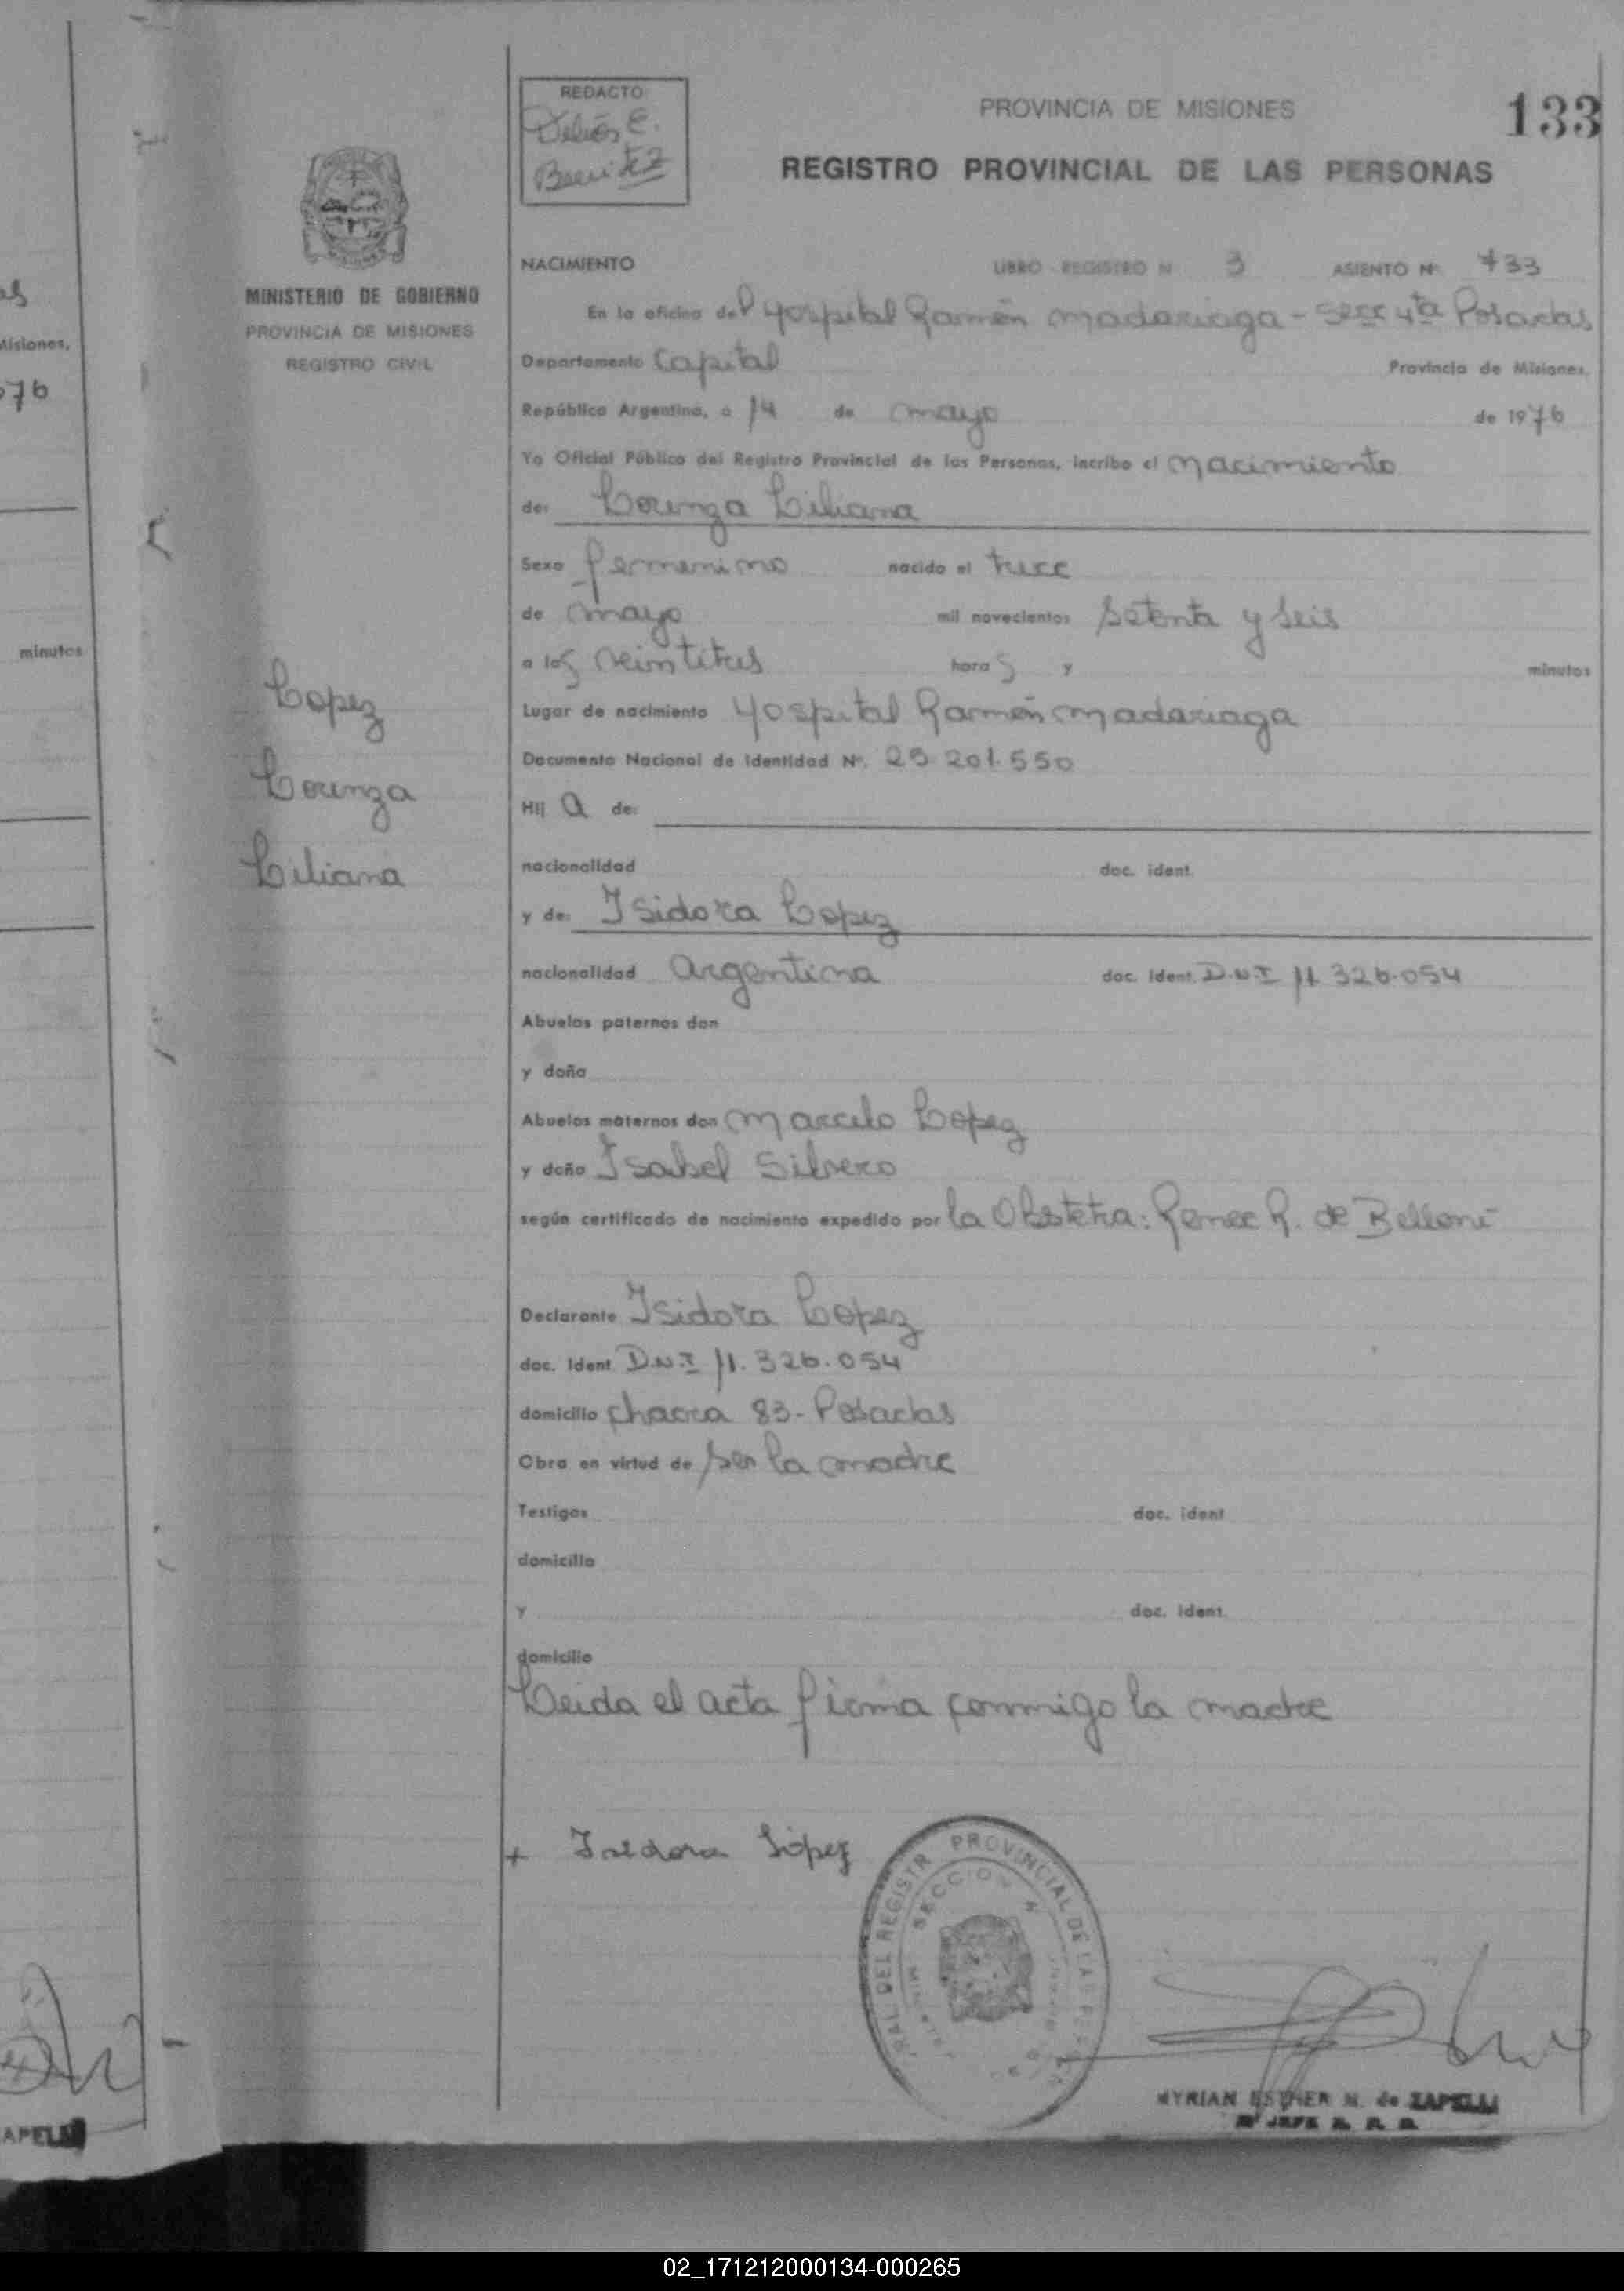 133
REDACTO
Benitez
PROVINCIA DE MISIONES
REGISTRO PROVINCIAL DE LAS PERSONAS
MINISTERIO DE GOBIERNO
PROVINCIA DE MISIONES
REGISTRO CIVIL
Misiones,
76
minutos
Lopez
Lorenza
Liliana
NACIMIENTO LIBRO - REGISTRO N 3 ASIENTO Nº 733
En la oficina del Hospital Ramón Madariaga - Secc 4ta Posadas
Departamento Capital Provincia de Misiones,
República Argentina, a 14 de mayo de 1976
Yo Oficial Público del Registro Provincial de las Personas, incribo el nacimiento
de: Lorenza Liliana
Sexo femenino nacido el trece
de mayo mil novecientos setenta y seis
a los veintitres horas y minutos
Lugar de nacimiento Hospital Ramón Madariaga
Documento Nacional de Identidad Nº. 25.201.550
Hij a de:
nacionalidad doc. ident.
y de: Isidora Lopez
nacionalidad Argentina doc. ident. D.N.I 11.326.054
Abuelos paternos don
y doña
Abuelos maternos don Marcelo Lopez
y doña Isabel Silvero
según certificado de nacimiento expedido por la Obstetra: Renee R. de Belloni
Declarante Isidora Lopez
doc. Ident. D.N.I 11.326.054
domicilio chacra 83 - Posadas
Obra en virtud de ser la madre
Testigos doc. ident
domicilio
y doc. ident.
domicilio
Leida el acta firma conmigo la madre
+ Isidora López
PROVINCIAL DE LAS
DEL REGISTR
SECCION
MYRIAN ESTHER N. de ZAPELLI
JEFE R. P.
APELLI
02_171212000134-000265